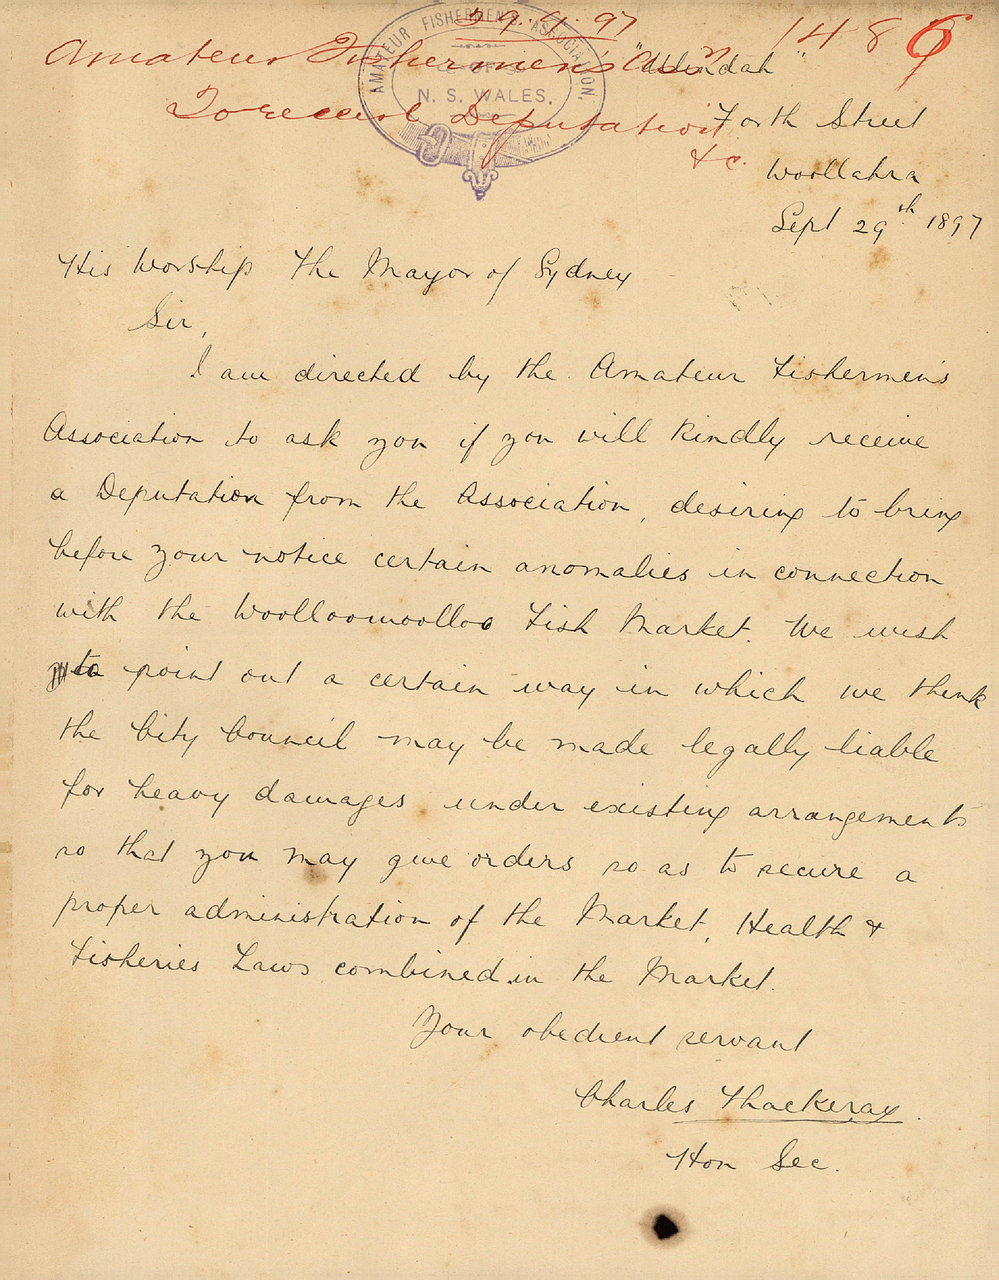 29.9.97
1486
Amateur Fishermen's Assn
To receive Deputation
&c.
AMATEUR FISHERMEN'S ASSOCIATION.
OF
N. S. WALES.
Forth Street
Woollahra
Sept 29th 1897
His Worship The Mayor of Sydney
Sir,
I am directed by the Amateur Fishermen's
Association to ask you if you will kindly receive
a Deputation from the Association, desiring to bring
before your notice certain anomalies in connection
with the Woolloomoolloo Fish Market. We wish
to point out a certain way in which we think
the City Council may be made legally liable
for heavy damages under existing arrangements
so that you may give orders so as to secure a
proper administration of the Market, Health &
Fisheries Laws combined in the Market.
Your obedient servant
Charles Thackeray.
Hon Sec.